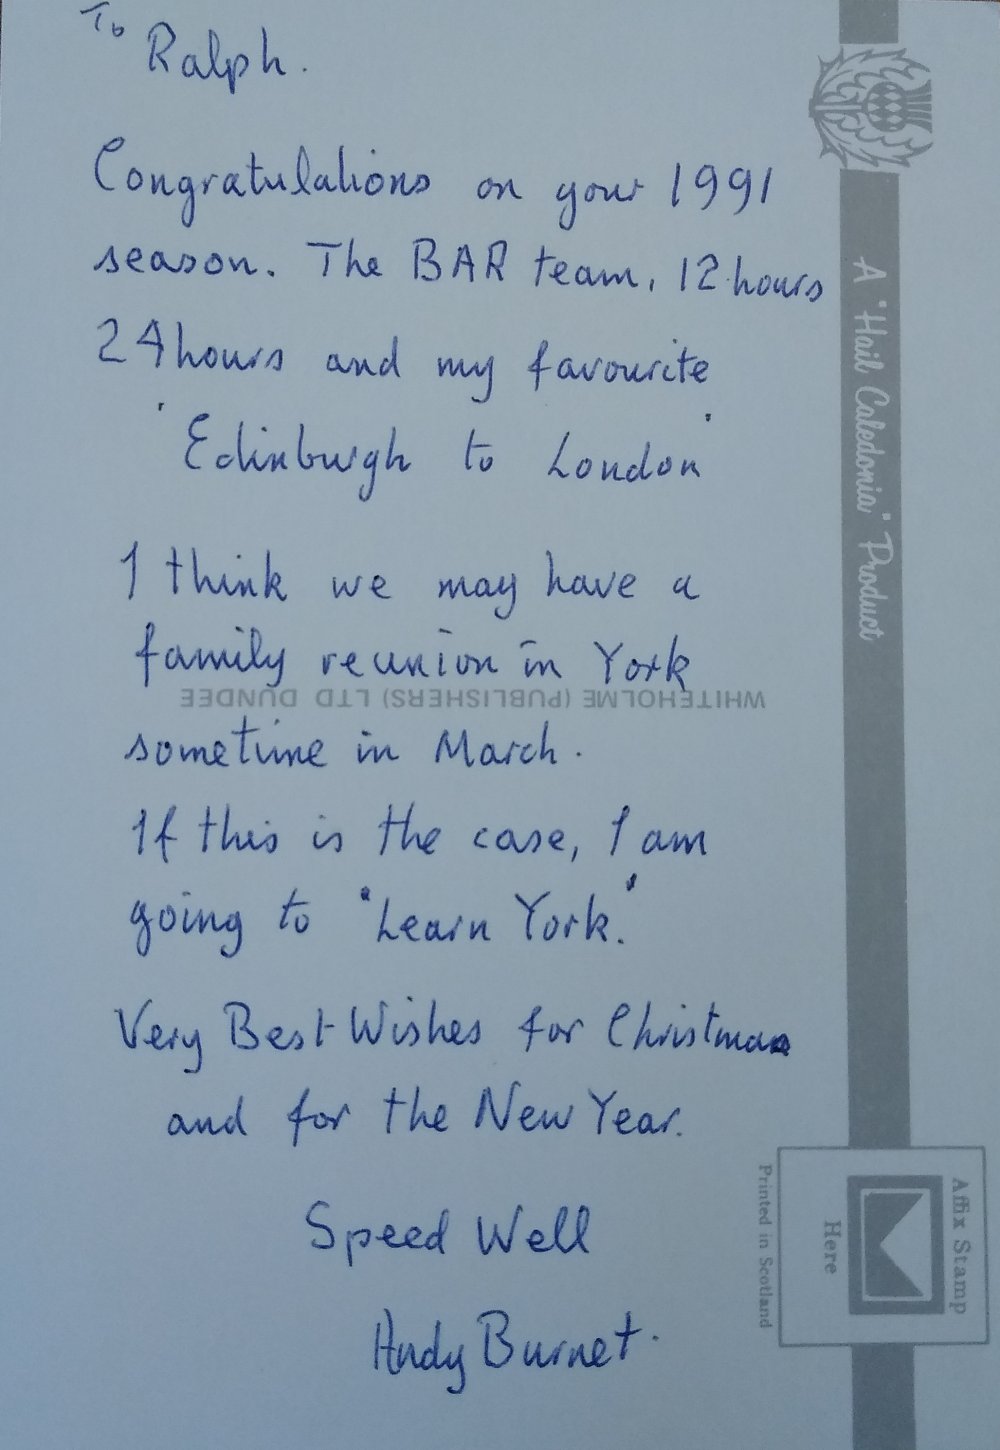 To Ralph.
Congratulations on your 1991
season. The BAR team, 12 hours
24 hours and my favourite
"Edinburgh to London"
I think we may have a
family reunion in York
WHITEHOLME (PUBLISHERS) LTD DUNDEE
sometime in March.
If this is the case, I am
going to "Learn York."
Very Best Wishes for Christmas
and for the New Year.
Speed Well
Andy Burnet.
A "Hail Caledonia" Product
Affix Stamp
Here
Printed in Scotland